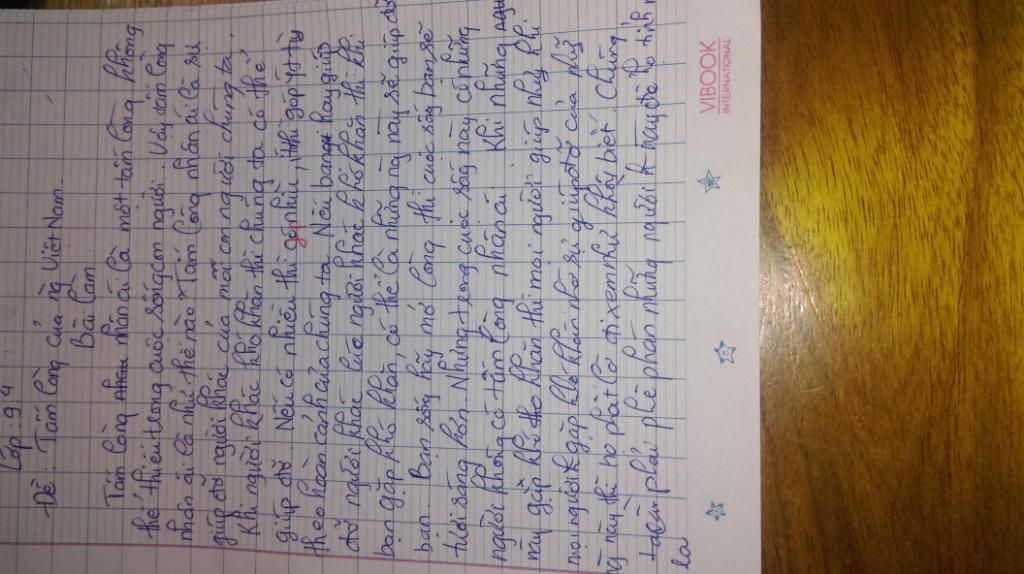 Lớp: 9 4
Đề: Tấm lòng của ng Việt Nam.
Bài làm
Tấm lòng nhân ái là một tấm lòng không
thể thiếu trong cuộc sống con người. Vậy tấm lòng
nhân ái là như thế nào Tấm lòng nhân ái là sự
giúp đỡ người khác của mỗi con người chúng ta.
Khi người khác khó khăn thì chúng ta có thể
giúp đỡ. Nếu có nhiều thì góp nhiều, ít thì góp ít tùy
theo hoàn cảnh của chúng ta. Nếu bạn hay giúp
đỡ người khác lúc người khác khó khăn thì khi
bạn gặp khó khăn, có thể là những ng này sẽ giúp đỡ
bạn. Bạn sống hãy mở lòng thì cuộc sống bạn sẽ
tươi sáng hơn. Nhưng trong cuộc sống này có những
người không có tấm lòng nhân ái. Khi những
này gặp khó khăn thì mọi người giúp nhưng khi
mọi người gặp khó khăn nhờ sự giúp đỡ của những
ng này thì họ phát lờ đi xem như không biết. Chúng
ta cần phải phê phán những người k thay đổi
là
VIBOOK
INTERNATIONAL